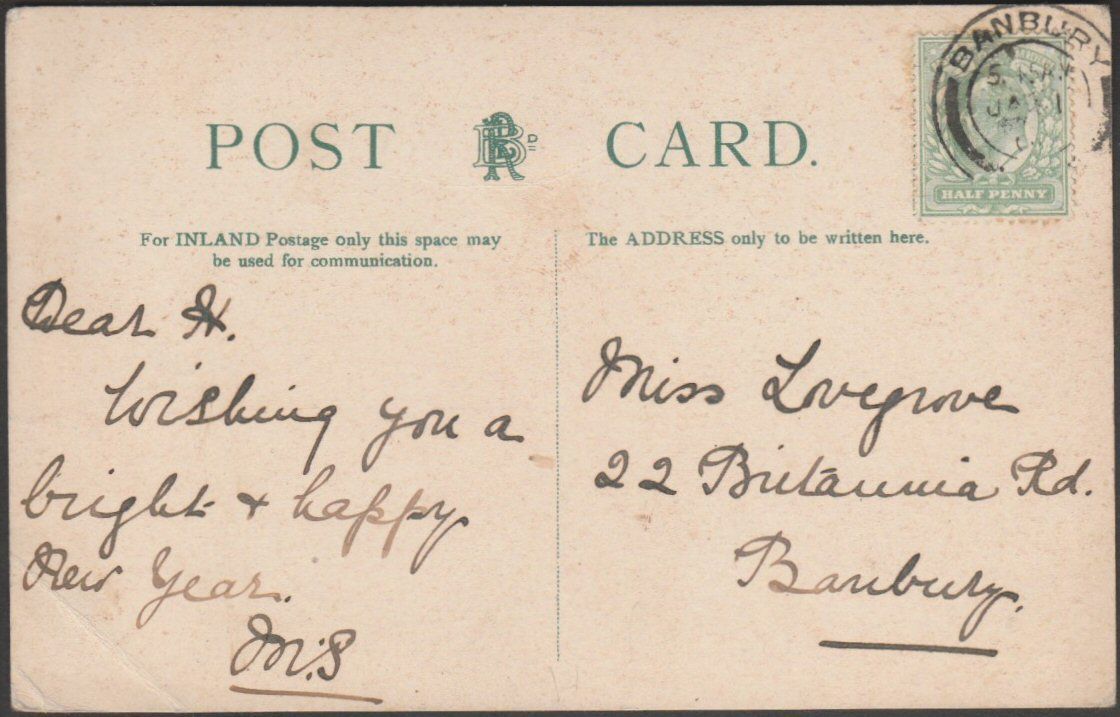 POST CARD.
For INLAND Postage only this space may
be used for communication.
The ADDRESS only to be written here.
BANBURY
HALF PENNY
Dear H.
Wishing you a
bright & happy
New Year.
M.S
Miss Lovegrove
22 Britannia Rd.
Banbury.